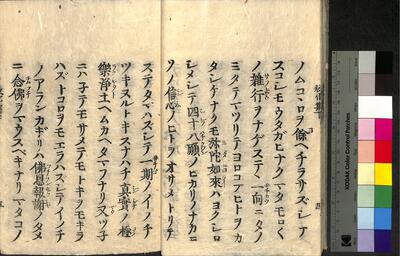 ノムコヽロヲ餘ヘチラサズシテ
スコシモウタガヒナクタモロくノ雑行ヲナゲステ一向ニタノ
ミタテマツリテヨロコブヒトヲカ
タジケナクモ弥陀如来ハヨクシロ
シメシテ四十八願ノヒカリノナカニ
ソノ信心ノヒトヲオサメトリテ
ステタマハズシテ一期ノイノチ
ツキヌルトキスナハチ真實ノ極
樂浄土ヘムカヘタマフナリ又ツ子
ニハ子テモサメテモトキヲモキラ
ハズトコロヲモエラハズシテイノチ
ノアランカギリハ佛恩報謝ノタメ
ニ念佛ヲマウスベキナリマタコノ
KODAK Color Control Patches